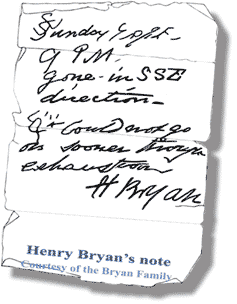 Sunday 9 Sept.
9 PM.
Gone in SSE
direction
Could not go
on sooner through
exhaustion
H Bryan
Henry Bryan's note
Courtesy of the Bryan Family